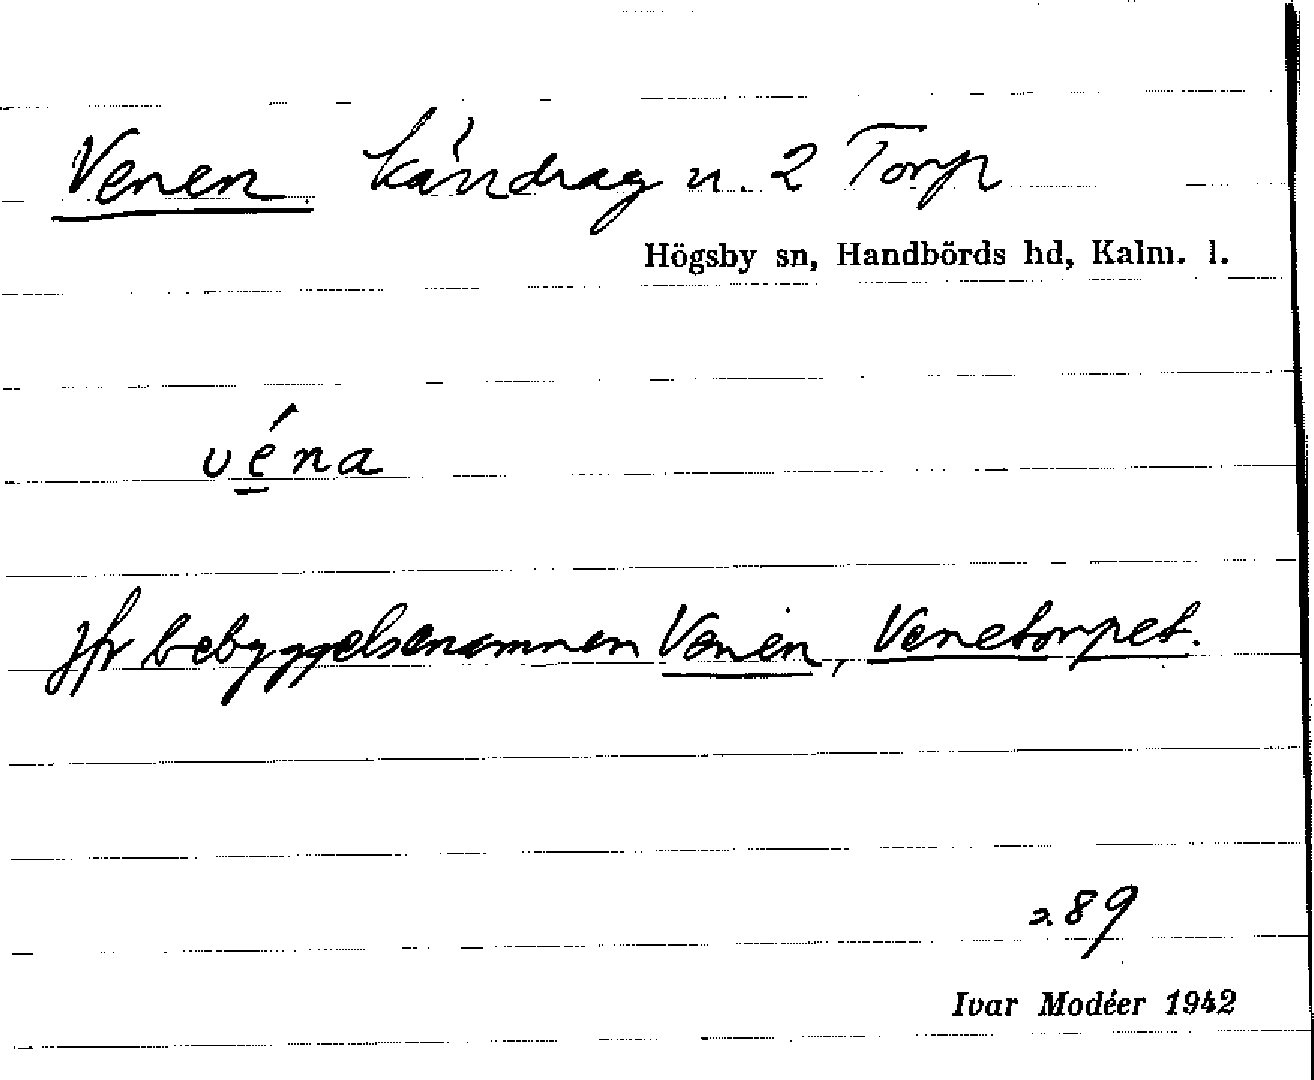 Venen kärrdrag u. 2 Torp
Högsby sn, Handbörds hd, Kalm. l.
véna
jfr bebyggelsenamnen Venen, Venetorpet.
289
Ivar Modéer 1942